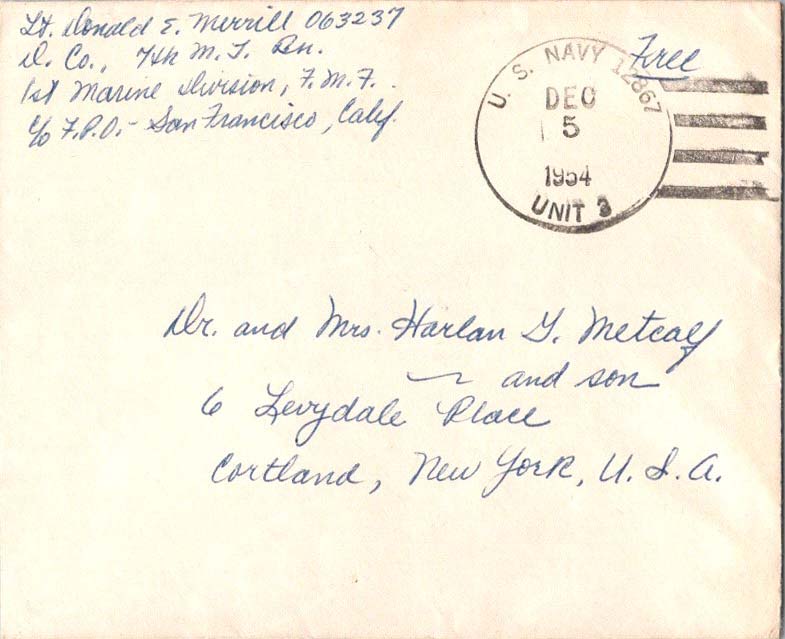 Lt. Donald E. Merrill 063237
D. Co., 7th M.T. Bn.
1st Marine Division, F.M.F.
c/o F.P.O.- San Francisco, Calif.
Free
U. S. NAVY 12867
DEC
5
1954
UNIT 3
Dr. and Mrs. Harlan G. Metcalf
and son
6 Levydale Place
Cortland, New York, U.S.A.